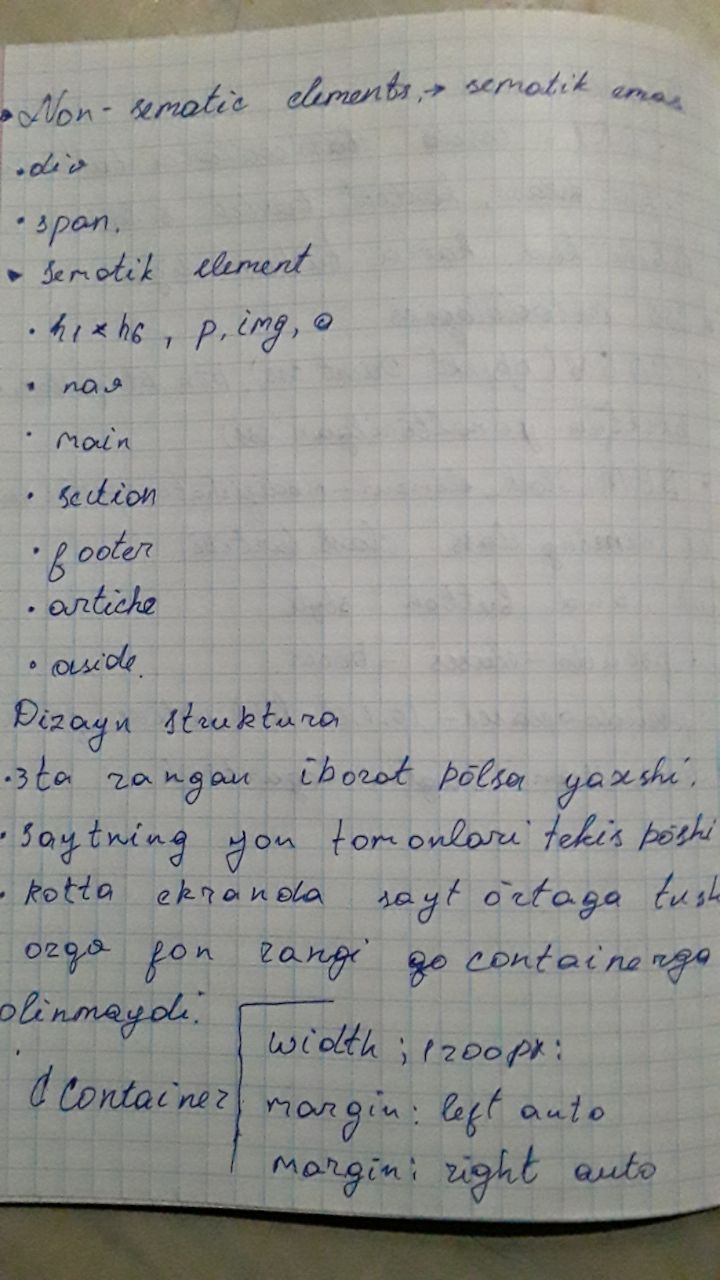 • Non-sematic elements, → sematik emas
• div
• span.
• sematik element
• h1 × h6, p, img, a
• nav
• main
• section
• footer
• artiche
• aside.
Dizayn struktura
• 3ta rangan iborat bõlsa yaxshi.
• saytning yon tomonlari tekis bõshi
• kotta ekranda sayt õrtaga tush
orqa fon rangi containerga
olinmaydi.
container
width ; 1200px:
margin: left auto
margin: right auto